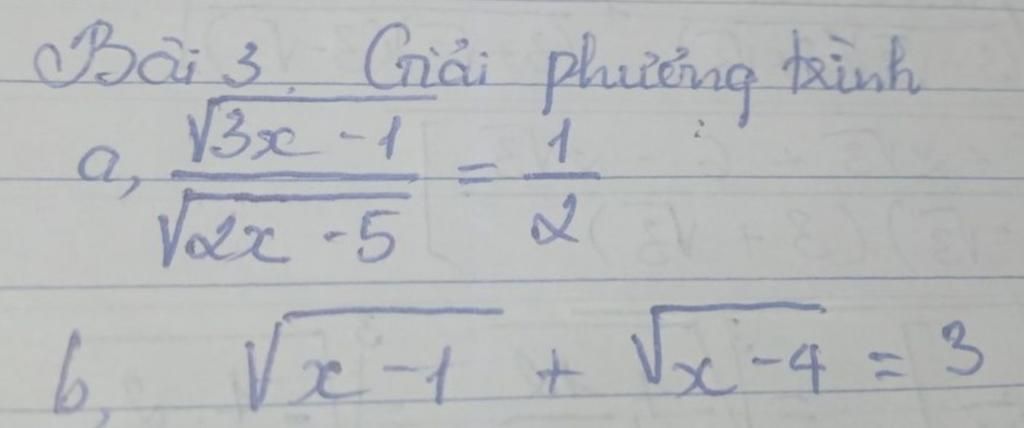 Bài 3. Giải phương trình
a, √(3x - 1) / √(2x - 5) = 1/2
b, √(x - 1) + √(x - 4) = 3